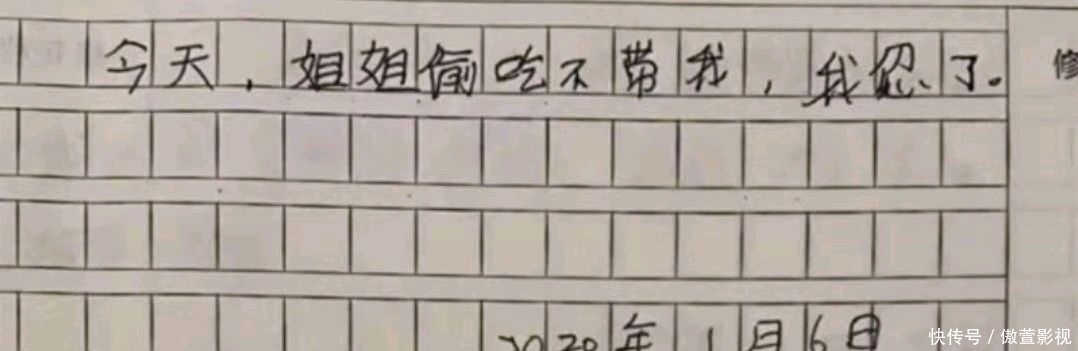 今天，姐姐偷吃不带我，我忍了。
修
2020年1月6日
快传号／傲萱影视